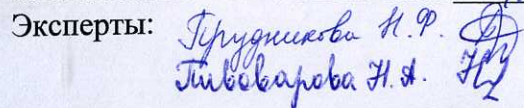 Эксперты: Прудникова Н.Ф.
Пивоварова Н.А.